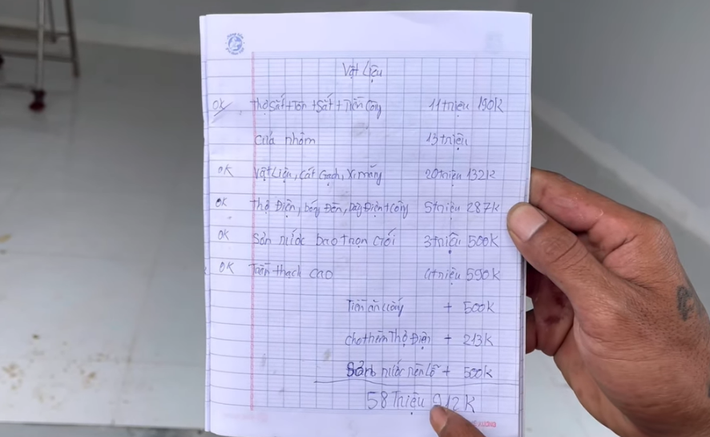 Vật Liệu
OK Thợ sắt + Tôn + Sắt + Tiền Công 11 triệu 190K
Cửa nhôm 13 triệu
OK Vật Liệu, Cát Gạch, Xi măng 20 triệu 132K
OK Thợ Điện, bóng Đèn, Dây Điện + Công 5 triệu 287K
OK Sơn nước bao trọn Gói 3 triệu 500K
OK Trần thạch cao 4 triệu 590K
Tiền ăn uống + 500K
cho thêm Thợ Điện + 213K
Sơn nước + 500K
58 Triệu 912K